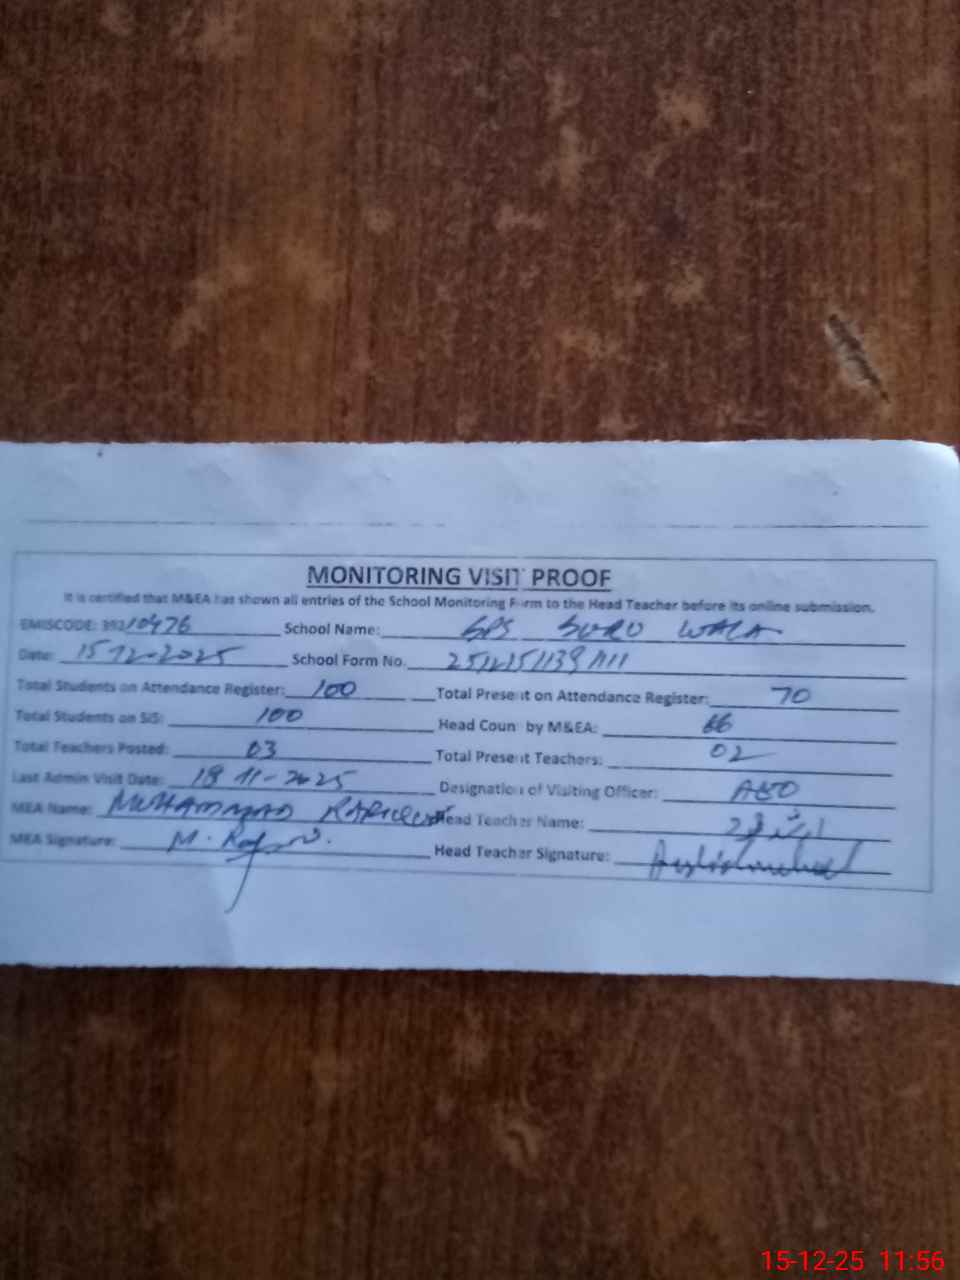 MONITORING VISIT PROOF
It is certified that M&EA has shown all entries of the School Monitoring Form to the Head Teacher before its online submission.
EMISCODE: 39210476 School Name: GPS SURU WALA
Date: 15-12-2025 School Form No.
Total Students on Attendance Register: 100 Total Present on Attendance Register: 70
Total Students on SIS: 100 Head Count by M&EA: 66
Total Teachers Posted: 03 Total Present Teachers: 02
Last Admin Visit Date: 18-11-2025 Designation of Visiting Officer: AEO
MEA Name: MUHAMMAD Head Teacher Name:
MEA Signature: M. Head Teacher Signature:
15-12-25 11:56